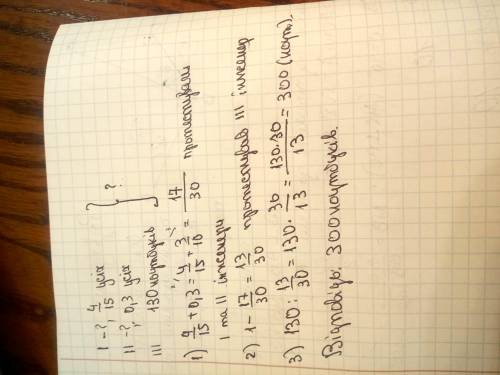 I - ?, 4/15 усіх
II - ?, 0,3 усіх } ?
III 130 ноутбуків
1) 4/15 + 0,3 = 4/15 + 3/10 = 17/30 протестували
I та II інженери
2) 1 - 17/30 = 13/30 протестував III інженер
3) 130 : 13/30 = 130 · 30/13 = 130·30/13 = 300 (ноут.).
Відповідь: 300 ноутбуків.